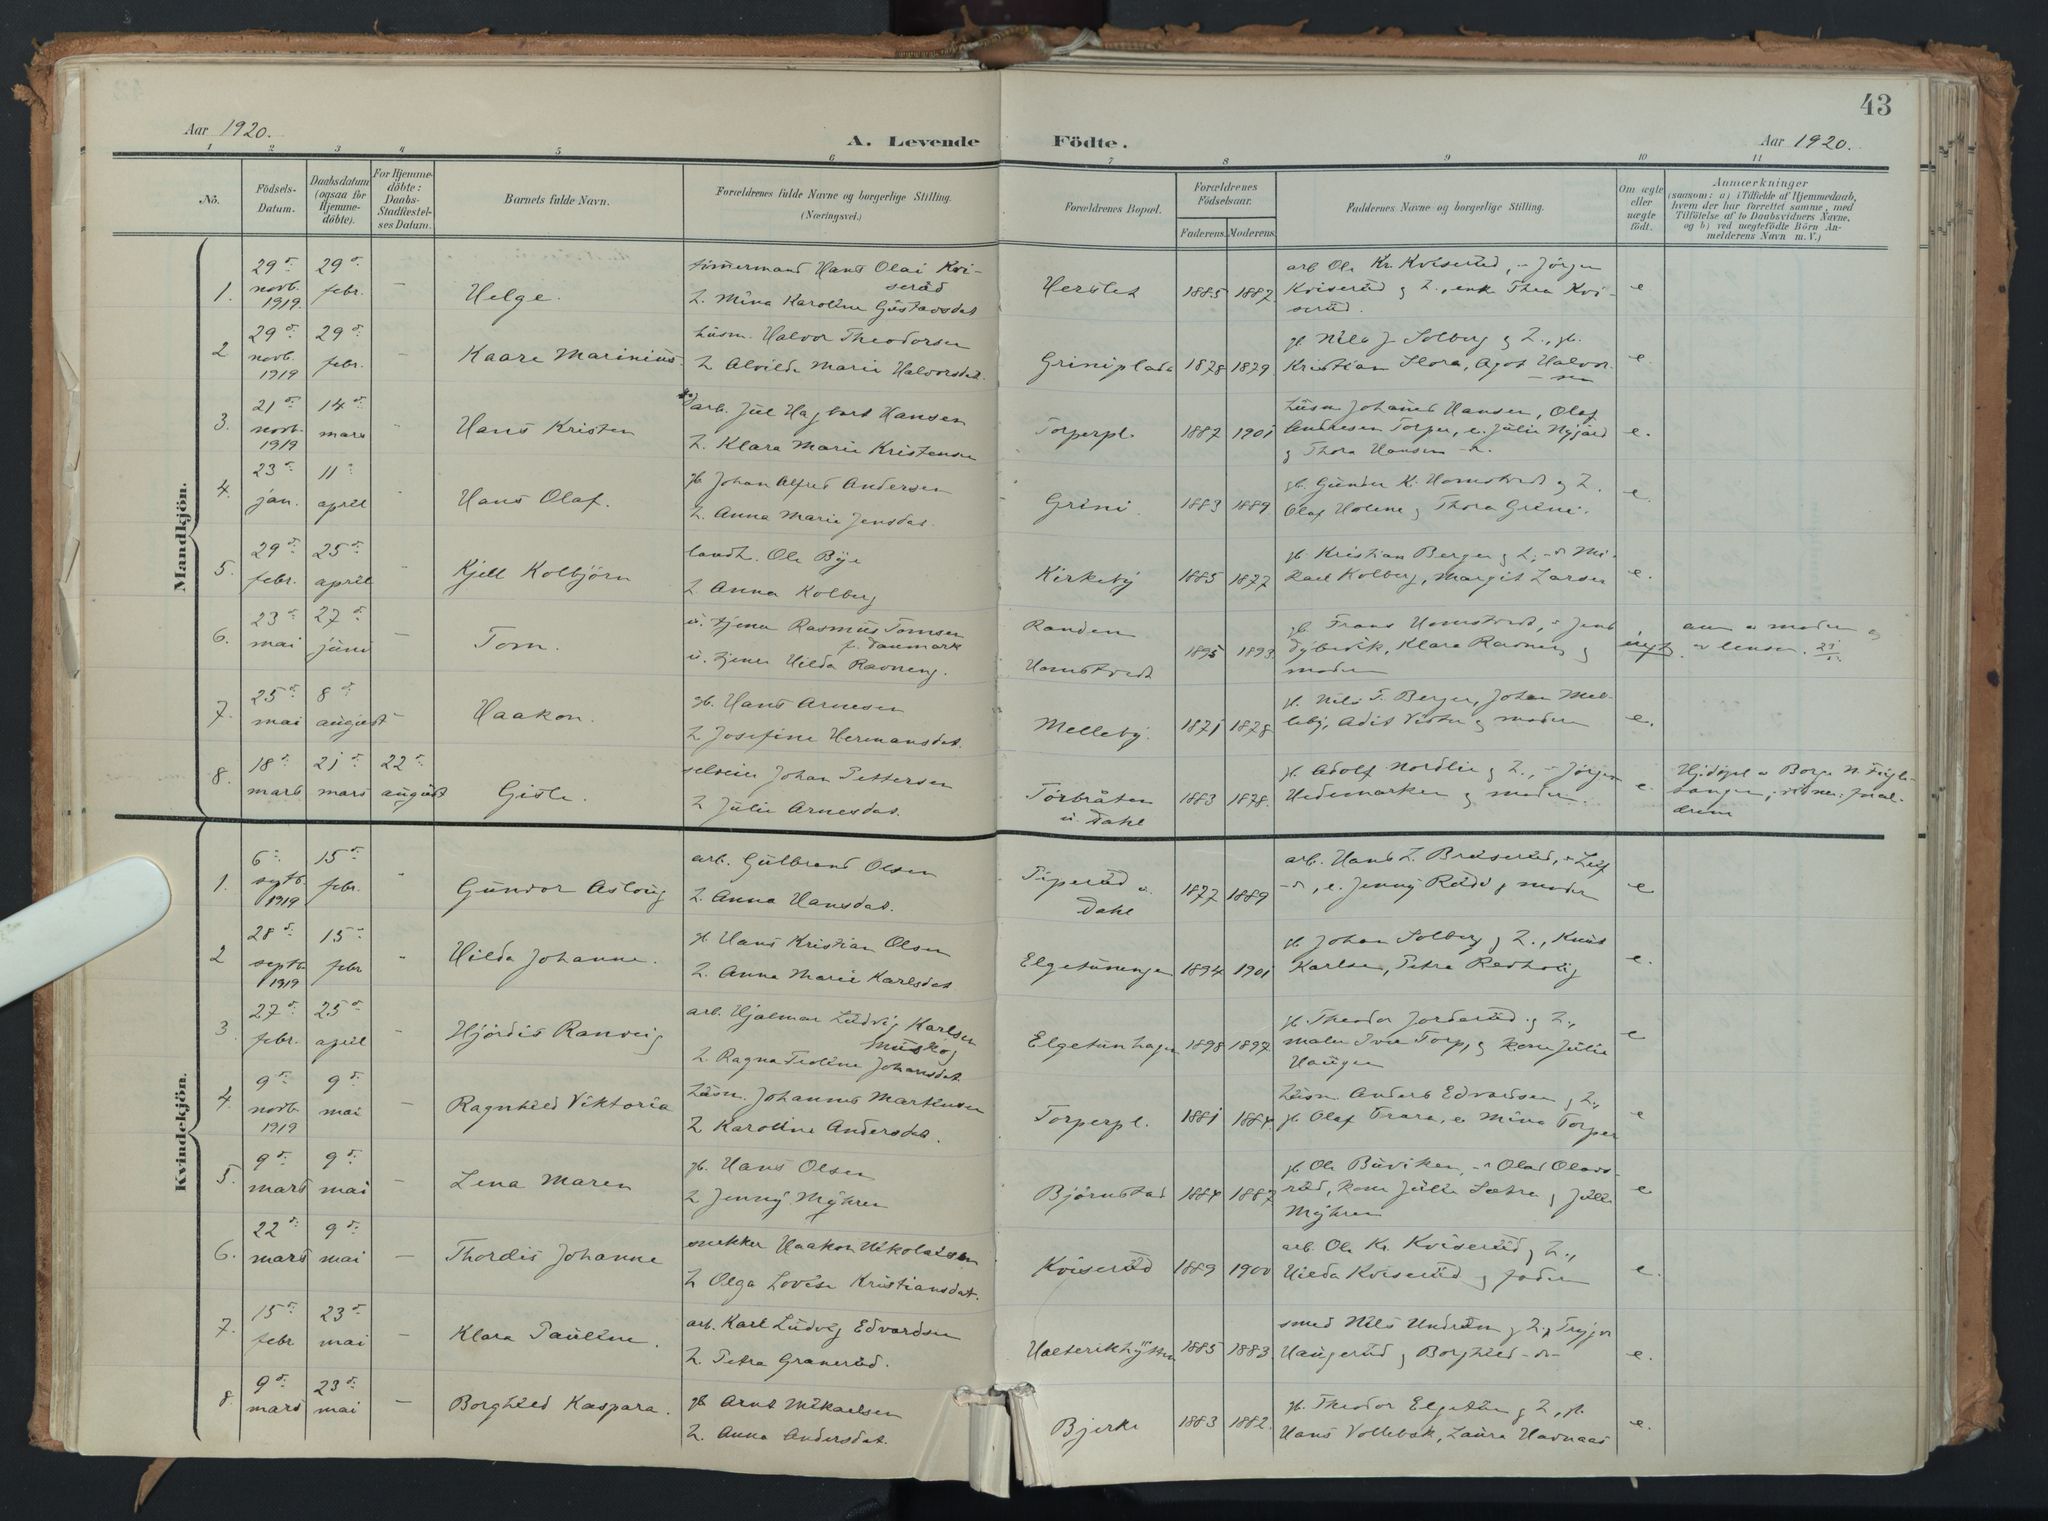 43
Aar 1920.
A. Levende Födte.
Aar 1920.
1 2 3 4 5 6 7 8 9 10 11
No.
Födsels-Datum.
Daabsdatum (ogsaa for Hjemme-döbte).
For Hjemme-döbte: Daabs-Stadfæstel-ses Datum.
Barnets fulde Navn.
Forældrenes fulde Navne og borgerlige Stilling. (Næringsvei.)
Forældrenes Bopæl.
Forældrenes Födselsaar.
Faderens. Moderens.
Faddernes Navne og borgerlige Stilling.
Om ægte eller uægte födt.
Anmærkninger
(saasom: a) i Tilfælde af Hjemmedaab,
hvem der har forrettet samme, med
Tilföielse af to Daabsvidners Navne,
og b) ved uægtefödte Börn An-
melderens Navn m. V.)
Mandkjön.
1. 29 novb. 1919 29 febr. - Helge.
timermand Hans Olai Kvi-
serud
Mina Karoline Gustavsdat
Herslet 1885 1887
arb Ole Kr. Kviserud, Jörgen
Kviserud og enke Thea Kvi-
serud. e
2 29 novb. 1919 29 febr. - Kaare Marinius.
husm. Halvor Theodorsen
Alvilde Marie Halvorsdat.
Griniplads 1878 1879
gb Nils J Solberg og
Kristian Flora, Agot Halvor-
sen e.
3. 21 novb. 1919 14 mars Hans Kristen
arb. Jul Hagbart Hansen
Klara Marie Kristensen
Torperpl. 1887 1901
husm Johannes Hansen, Olaf
Andresen Torper, Julie Nygård
og Thora Hansen e.
4. 23 jan. 11 april Hans Olaf.
gb Johan Alfred Andersen
Anna Marie Jensdat.
Grini. 1883 1889.
gb. Gunder K. Homstvedt og
Olaf Holene og Thora Grini. e.
5. 29 febr. 25 april Kjell Kolbjörn
landh. Ole Bye
Anna Kolberg
Kirkeby 1885 1877
gb. Kristian Berger og
Kolberg, Margit Larsen e.
6. 23 mai 27 juni - Tom.
u. tjener Rasmus Tomsen
f. Danmark
u. tjener Hilda Ravneng.
Randen
Homstvedt 1895 1893.
gb. Frans Homstvedt, Jens
Dybevik, Klara Ravneng og
moderen
anm av moderen og
av lensm.
7. 25 mai 8 august - Haakon.
gb. Hans Arnesen
Josefine Hermansdat.
Melleby. 1871 1878
gb. Nils T. Berger, Johan Mel-
leby, Adit og moderen e.
8. 18 mars 21 mars 22 august Gisle.
selveier Johan Pettersen
Julie Arnesdat.
Torbråten
u. Dahl 1883 1878.
gb. Adolf Nordlie og Jörgen
Hedemarken og moderen. e.
Hjdöpt av Borge N. Fugle-
sangen, vidner: foræl-
drene
Kvindekjön.
1. 6 septb. 1919 15 febr. Gundor Aslaug
arb. Gulbrand Olsen
Anna Hansdat.
Piperud u.
Dahl 1877 1889
arb. Hans L. Breiserud, Leif
Jenny og moder e
2 28 septb. 1919 15 febr Hilda Johanne.
gb. Hans Kristian Olsen
Anna Marie Karlsdat
Elgetunengen 1894 1901
gb Johan Solberg og Knut
Karlsen, Petra e.
3 27 febr. 25 april - Hjördis Ranveig
arb. Hjalmar Ludvig Karlsen
Muskog
Ragna Teoline Johansdat.
Elgetunhagen 1898 1897.
gb. Theodor Jorderud og
maler Iver Torp, og kone Julie
Haugen e
4. 9 novb. 1919 9 mai - Ragnhild Viktoria
husm. Johannes Martinsen
Karoline Andersdat.
Torperpl. 1881 1884.
husm. Anders Edvardsen og
gb Olaf Trara, Mina Torper e
5. 9 mars 9 mai - Lena Maren
gb. Hans Olsen
Jenny Myhren
Björnstad 1884 1887
gb Ole Buviken, Olaf Olavs-
rud, kone Julie Sætra og Julie
Myhren e
6. 22 mars 9 mai - Thordis Johanne
snekker Haakon Nikolaisen
Olga Lovise Kristiansdat.
Kviserud 1889 1900
arb. Ole Kr. Kviserud og
Hilda Kviserud og faderen e.
7. 15 febr 23 mai - Klara Pauline.
arb. Karl Ludvig Edvardsen
Petra Granerud.
1885 1883.
smed Nils Undrum og Trygve
Haugerud og Borghild e.
8. 9 mars 23 mai - Borghild Kaspara.
gb Arnt Mikaelsen
Anna Andersdat.
Bjerke 1883 1882.
gb. Theodor Elgetun og
Hans Vollebæk, Laura Havnaas e.